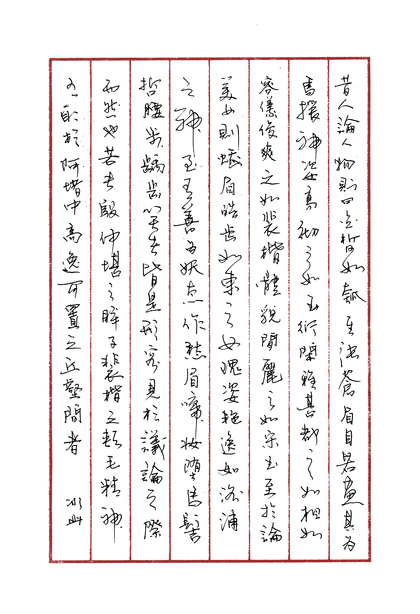 昔人論人物則曰白皙如瓠其為張蒼眉目若畫其為
馬援神姿高徹之如王衍閑雅甚都之如相如
容儀俊爽之如裴楷體貌閑麗之如宋玉至於論
美女則蛾眉皓齒如東之女瑰姿艷逸如洛浦
之神至有善為妖態作愁眉啼妝墮馬髻
折腰步齲齒笑者皆是形容見於議論之際
而然也若夫殷仲堪之眸子裴楷之頰毛精神
有取於阿堵中高逸可置之丘壑間者